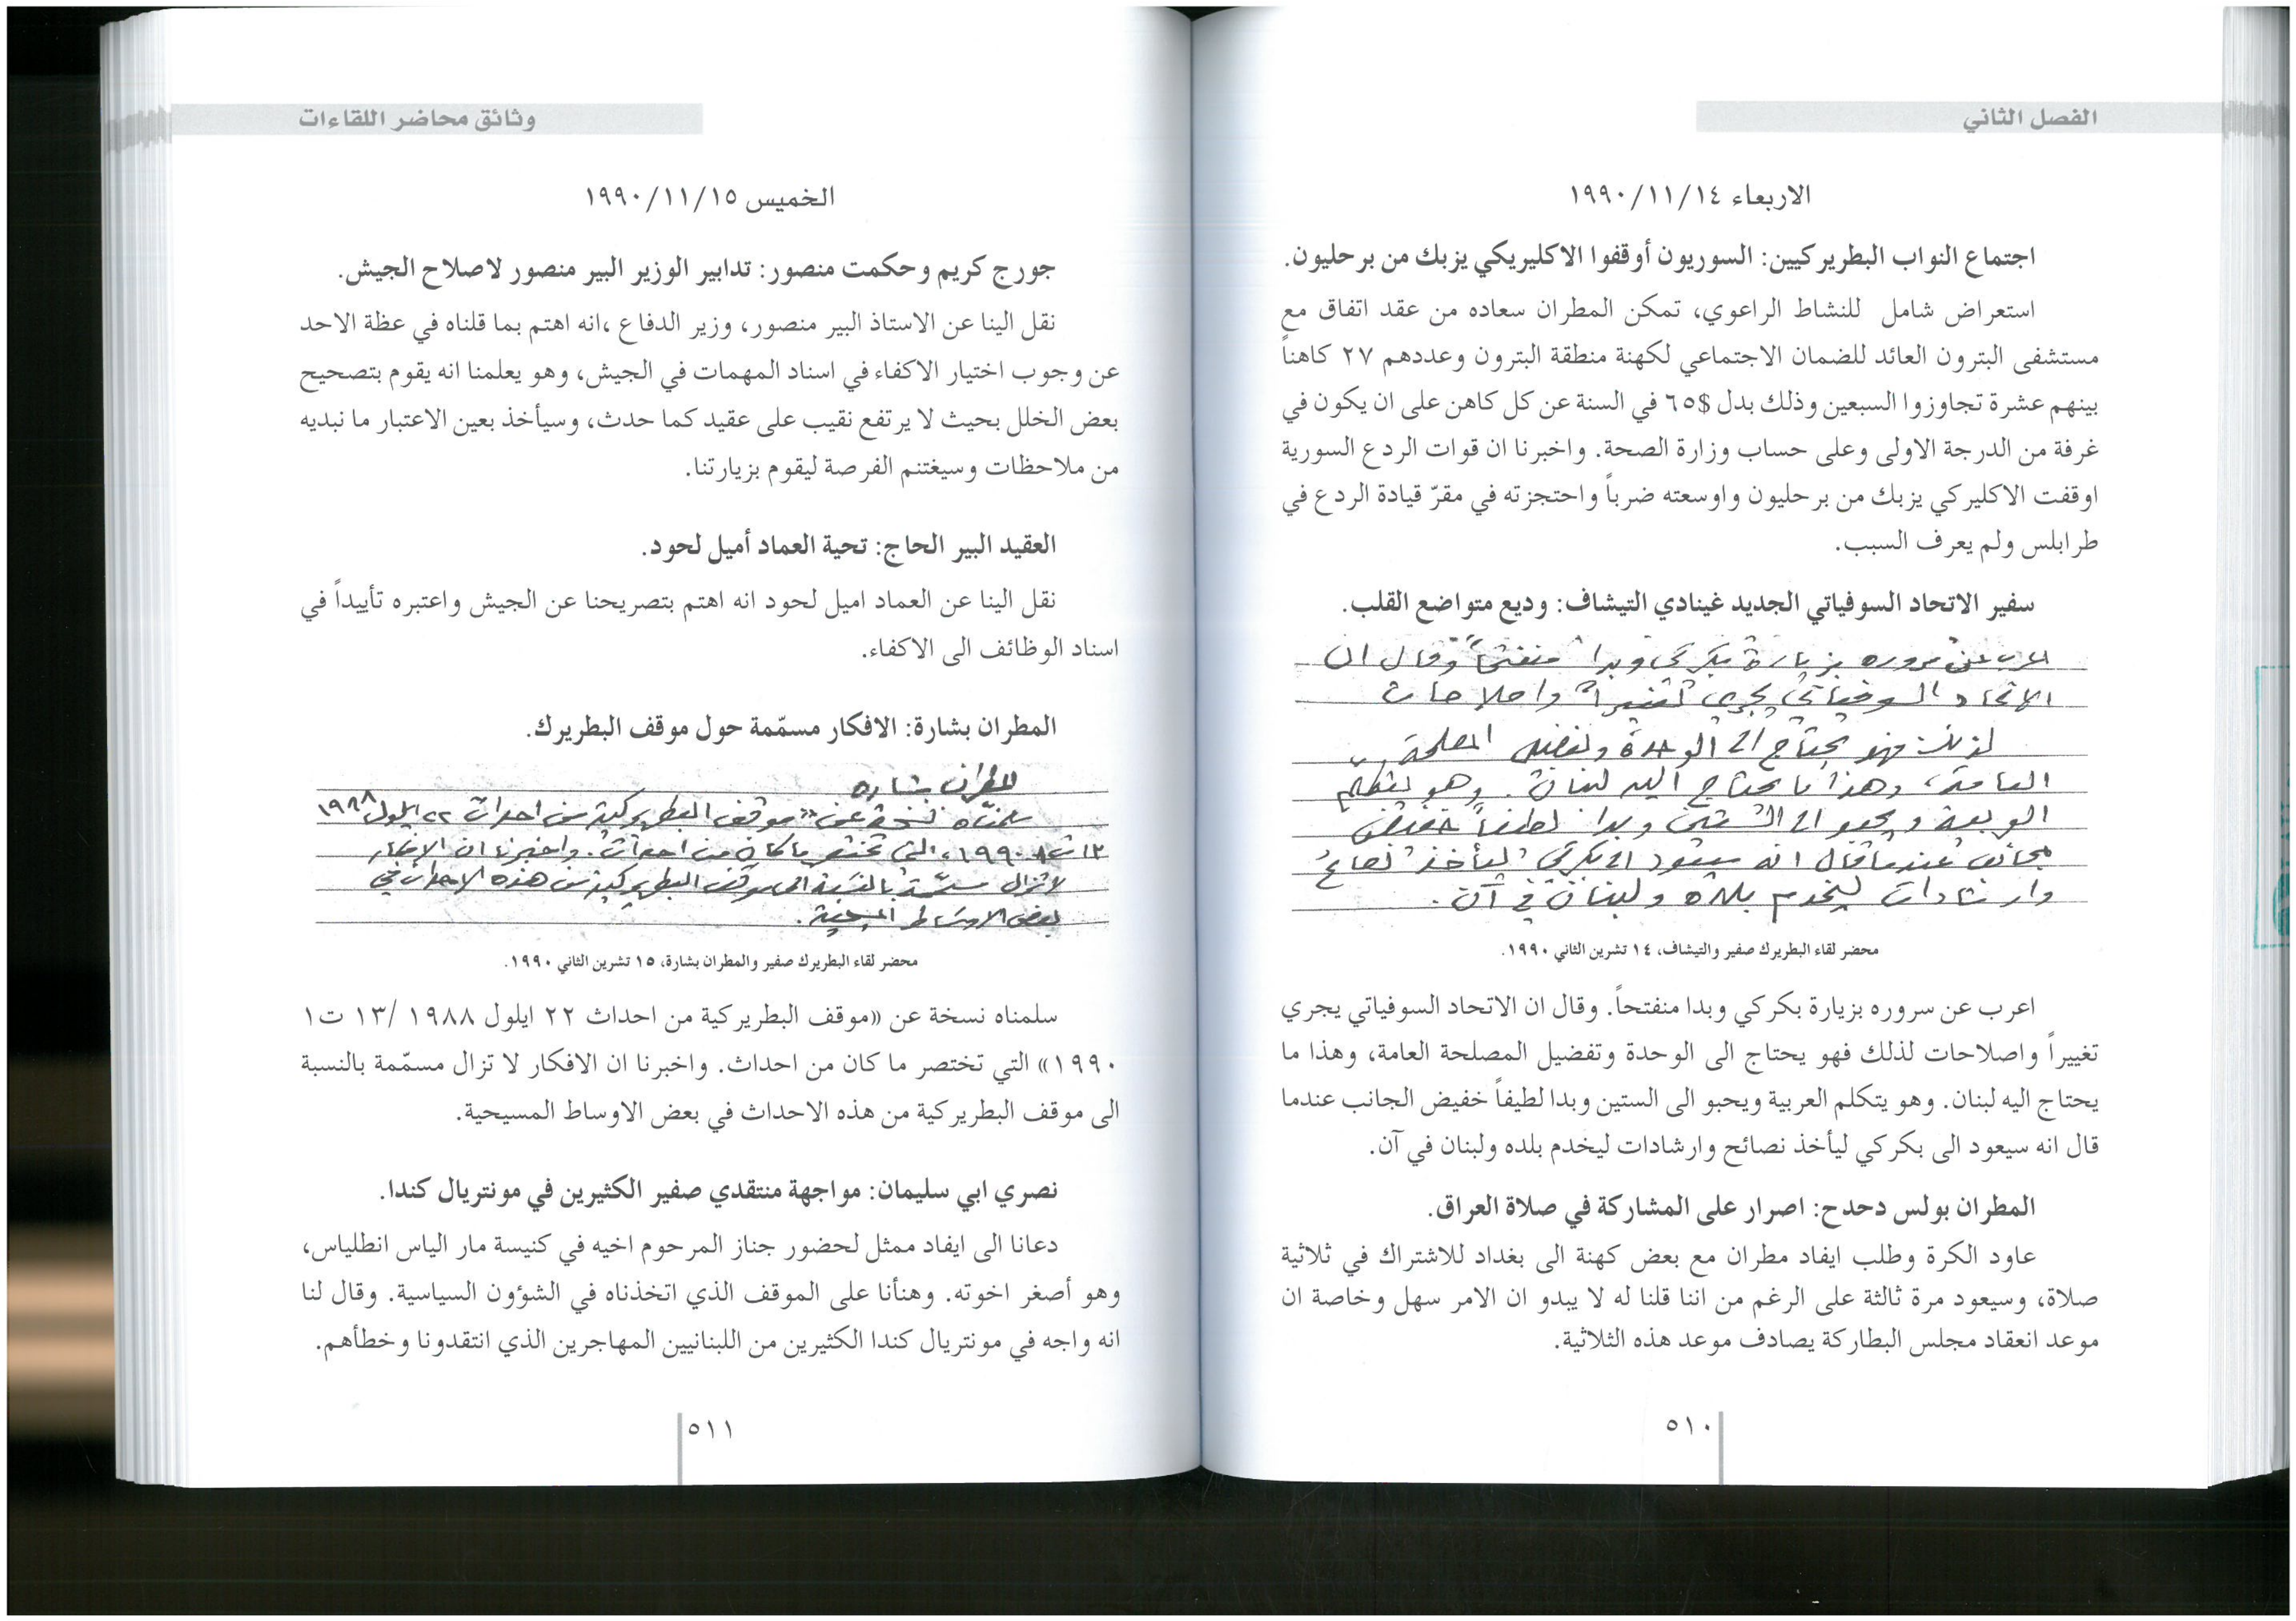 الفصل الثاني
الاربعاء ١٩٩٠/١١/١٤
اجتماع النواب البطريركيين: السوريون أوقفوا الاكليريكي يزبك من برحليون.
استعراض شامل للنشاط الراعوي، تمكن المطران سعاده من عقد اتفاق مع
مستشفى البترون العائد للضمان الاجتماعي لكهنة منطقة البترون وعددهم ٢٧ كاهناً
بينهم عشرة تجاوزوا السبعين وذلك بدل $٦٥ في السنة عن كل كاهن على ان يكون في
غرفة من الدرجة الاولى وعلى حساب وزارة الصحة. واخبرنا ان قوات الردع السورية
اوقفت الاكليركي يزبك من برحليون واوسعته ضرباً واحتجزته في مقرّ قيادة الردع في
طرابلس ولم يعرف السبب.
سفير الاتحاد السوفياتي الجديد غينادي التيشاف: وديع متواضع القلب.
اعرب عن سروره بزيارة بكركي وبدا منفتحاً وقال ان
الاتحاد السوفياتي يجري تغييراً واصلاحات
لذلك فهو يحتاج الى الوحدة وتفضيل المصلحة
العامة، وهذا ما يحتاج اليه لبنان. وهو يتكلّم
العربية ويحبو الى الستين وبدا لطيفاً خفيض
الجانب عندما قال انه سيعود الى بكركي ليأخذ نصائح
وارشادات ليخدم بلده ولبنان في آن.
محضر لقاء البطريرك صفير والتيشاف، ١٤ تشرين الثاني ١٩٩٠.
اعرب عن سروره بزيارة بكركي وبدا منفتحاً. وقال ان الاتحاد السوفياتي يجري
تغييراً واصلاحات لذلك فهو يحتاج الى الوحدة وتفضيل المصلحة العامة، وهذا ما
يحتاج اليه لبنان. وهو يتكلم العربية ويحبو الى الستين وبدا لطيفاً خفيض الجانب عندما
قال انه سيعود الى بكركي ليأخذ نصائح وارشادات ليخدم بلده ولبنان في آن.
المطران بولس دحدح: اصرار على المشاركة في صلاة العراق.
عاود الكرة وطلب ايفاد مطران مع بعض كهنة الى بغداد للاشتراك في ثلاثية
صلاة، وسيعود مرة ثالثة على الرغم من اننا قلنا له لا يبدو ان الامر سهل وخاصة ان
موعد انعقاد مجلس البطاركة يصادف موعد هذه الثلاثية.
٥١٠
وثائق محاضر اللقاءات
الخميس ١٩٩٠/١١/١٥
جورج كريم وحكمت منصور: تدابير الوزير البير منصور لاصلاح الجيش.
نقل الينا عن الاستاذ البير منصور، وزير الدفاع ،انه اهتم بما قلناه في عظة الاحد
عن وجوب اختيار الاكفاء في اسناد المهمات في الجيش، وهو يعلمنا انه يقوم بتصحيح
بعض الخلل بحيث لا يرتفع نقيب على عقيد كما حدث، وسيأخذ بعين الاعتبار ما نبديه
من ملاحظات وسيغتنم الفرصة ليقوم بزيارتنا.
العقيد البير الحاج: تحية العماد أميل لحود.
نقل الينا عن العماد اميل لحود انه اهتم بتصريحنا عن الجيش واعتبره تأييداً في
اسناد الوظائف الى الاكفاء.
المطران بشارة: الافكار مسمّمة حول موقف البطريرك.
المطران بشاره
سلمناه نسخة عن «موقف البطريركية من احداث ٢٢ ايلول ١٩٨٨
١٣ ت١ ١٩٩٠» التي تختصر ما كان من احداث. واخبرنا ان الافكار
لا تزال مسمّمة بالنسبة الى موقف البطريركية من هذه الاحداث في
بعض الاوساط المسيحية.
محضر لقاء البطريرك صفير والمطران بشارة، ١٥ تشرين الثاني ١٩٩٠.
سلمناه نسخة عن «موقف البطريركية من احداث ٢٢ ايلول ١٩٨٨ /١٣ ت١
١٩٩٠» التي تختصر ما كان من احداث. واخبرنا ان الافكار لا تزال مسمّمة بالنسبة
الى موقف البطريركية من هذه الاحداث في بعض الاوساط المسيحية.
نصري ابي سليمان: مواجهة منتقدي صفير الكثيرين في مونتريال كندا.
دعانا الى ايفاد ممثل لحضور جناز المرحوم اخيه في كنيسة مار الياس انطلياس،
وهو أصغر اخوته. وهنأنا على الموقف الذي اتخذناه في الشؤون السياسية. وقال لنا
انه واجه في مونتريال كندا الكثيرين من اللبنانيين المهاجرين الذي انتقدونا وخطأهم.
٥١١